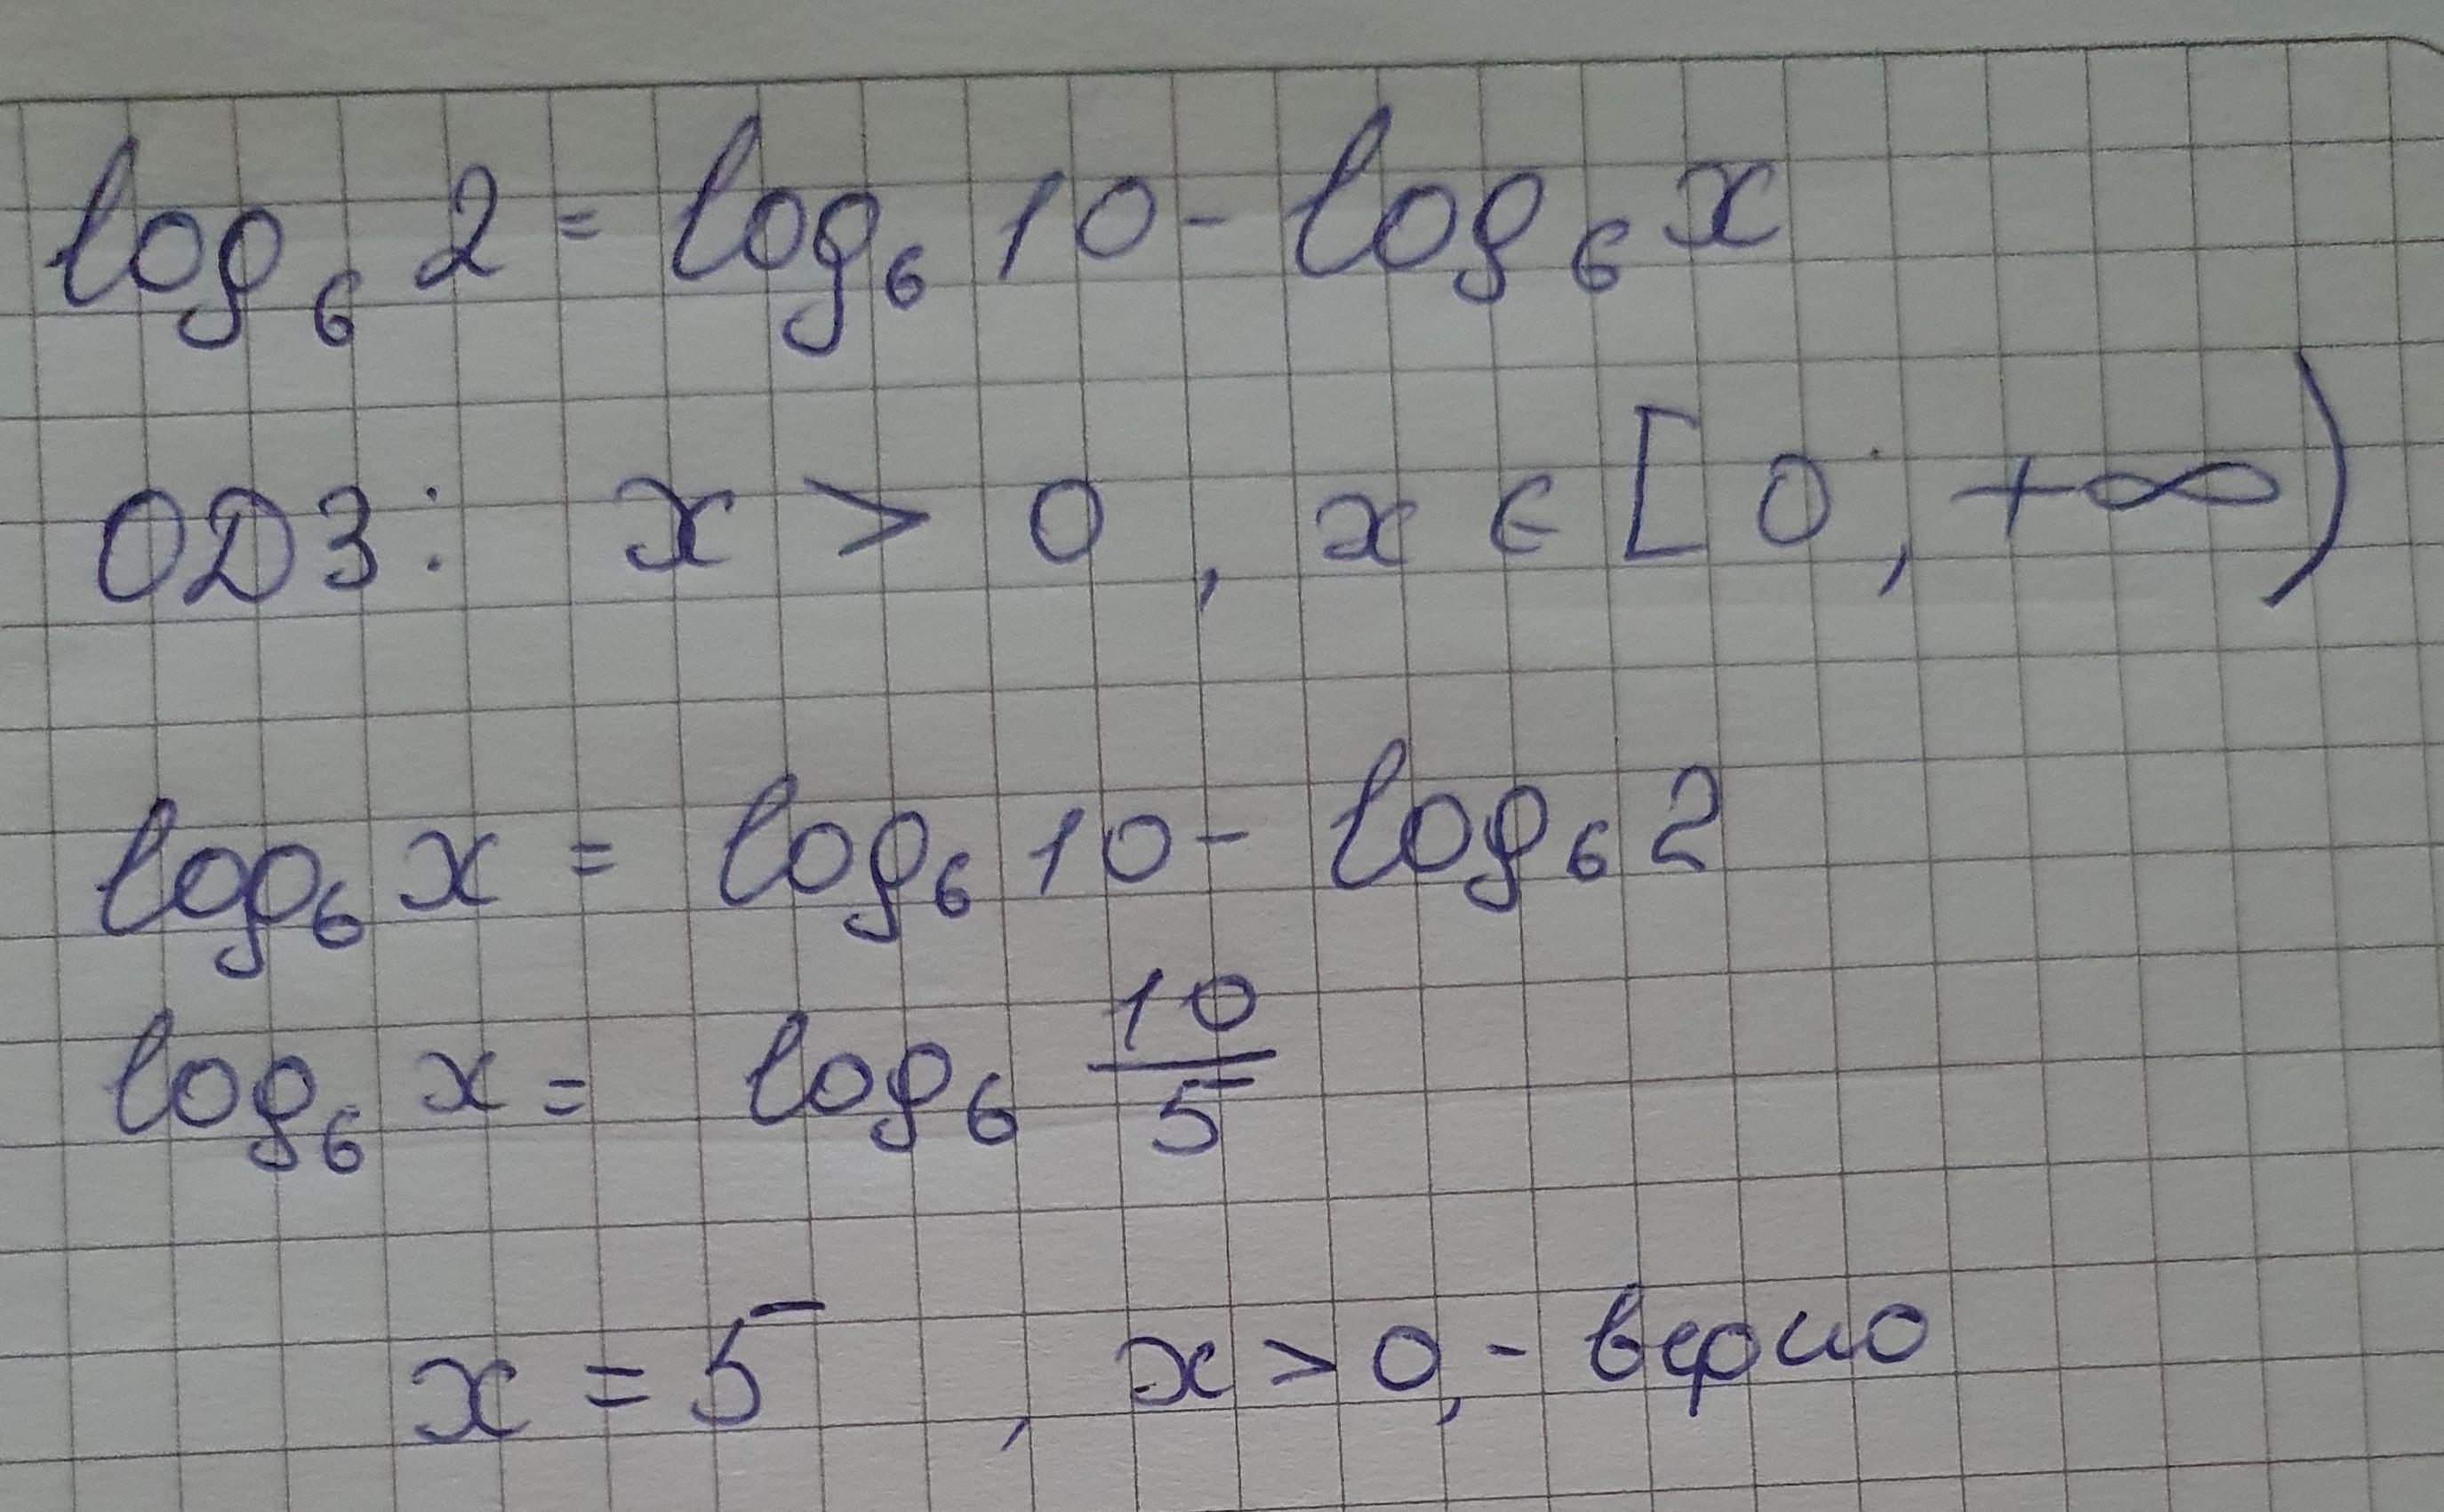 log₆ 2 = log₆ 10 - log₆ x
ОДЗ: x > 0, x ∈ [0; +∞)
log₆ x = log₆ 10 - log₆ 2
log₆ x = log₆ 10/5
x = 5, x > 0, - верно